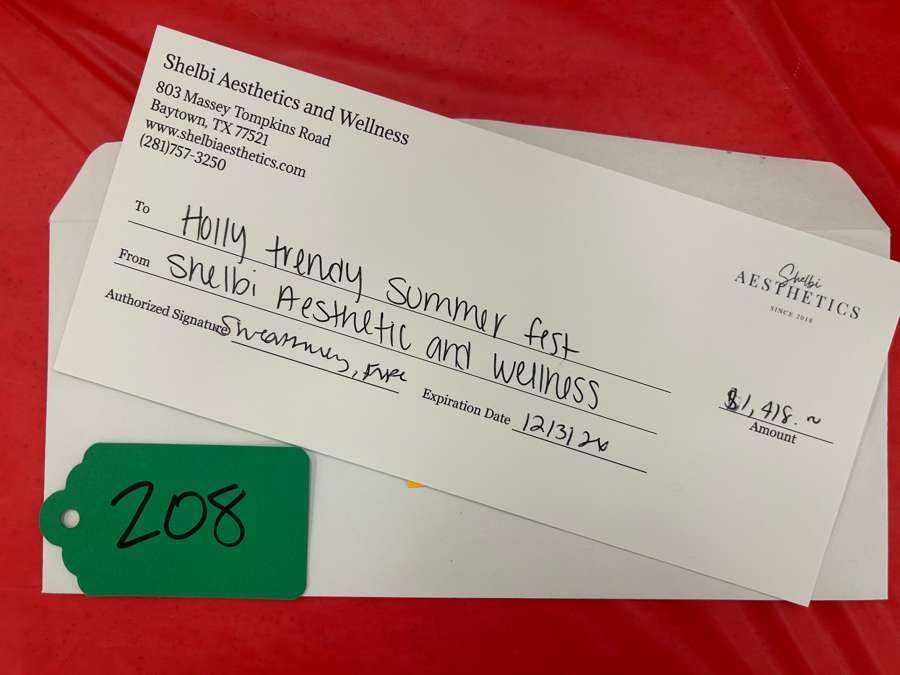 Shelbi Aesthetics and Wellness
803 Massey Tompkins Road
Baytown, TX 77521
www.shelbiaesthetics.com
(281)757-3250
To Holly trendy summer fest
From Shelbi Aesthetic and wellness
Authorized Signature
Expiration Date 12/31/26
Shelbi
AESTHETICS
SINCE 2018
$1,418.~
Amount
208